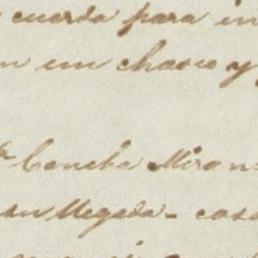 cuerda para in
un chasco y
Concha Miran
an llegada - casa